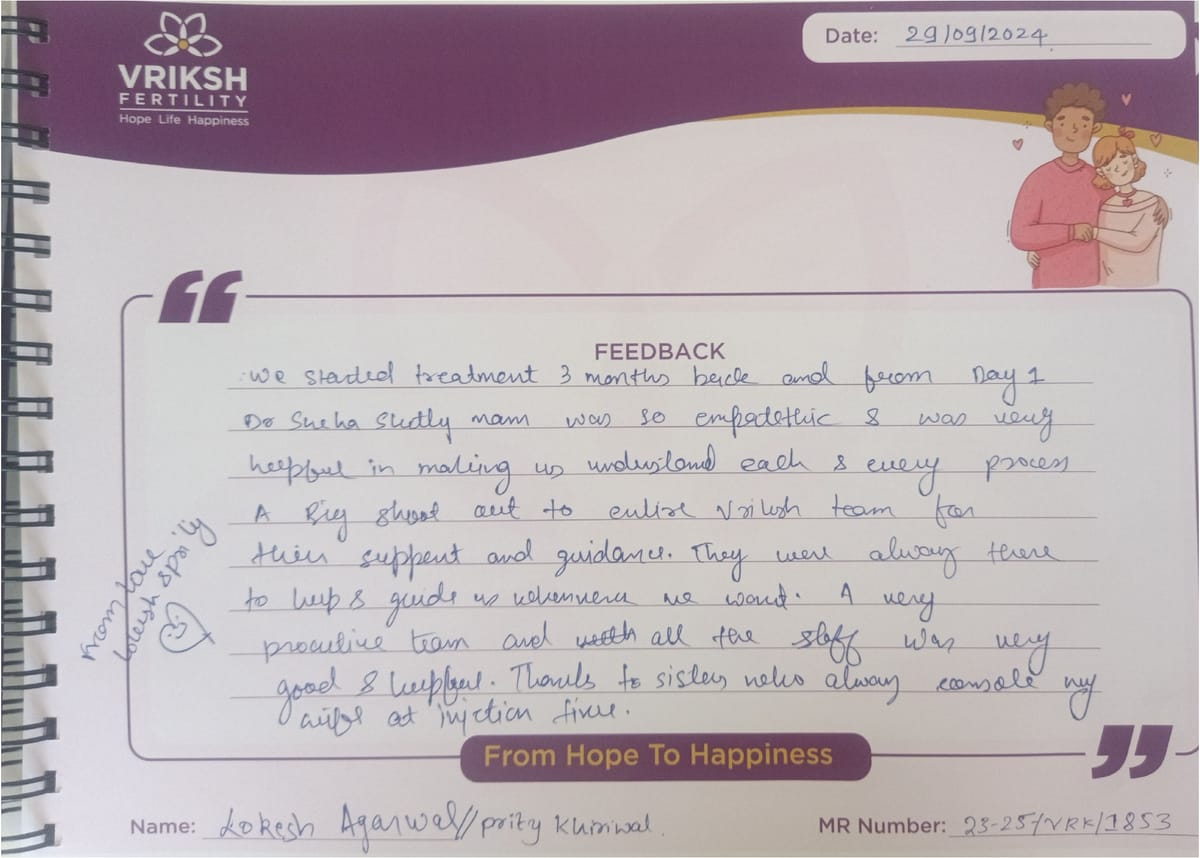 VRIKSH
FERTILITY
Hope Life Happiness
Date: 29/09/2024
FEEDBACK
we started treatment 3 months back and from Day 1
Dr Sneha Shetty mam was so empatethic & was very
helpful in making us understand each & every process
A Big shout out to entire Vriksh team for
their support and guidance. They were always there
to help & guide us whenever we want. A very
proactive team and all the staff was very
good & helpful. Thanks to sisters who always console my
wife at injction time.
From love
Lokesh & prity
From Hope To Happiness
Name: Lokesh Agarwal//prity Khiriwal
MR Number: 23-25/VRK/1853